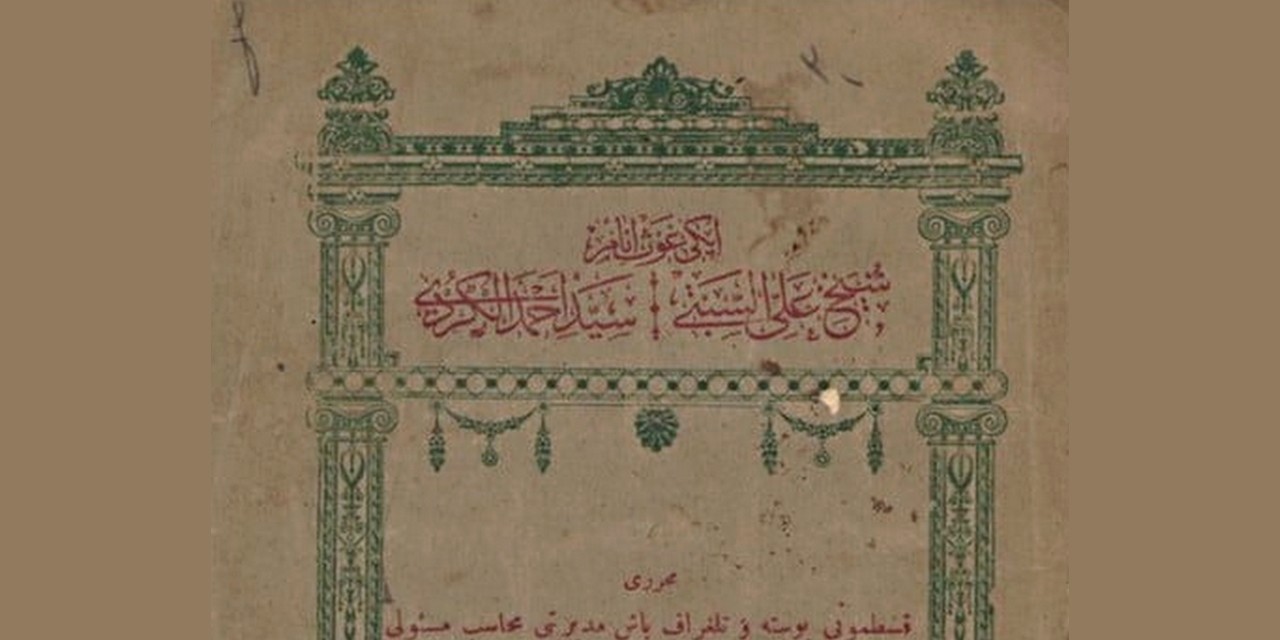 ایكی غوث انام
شیخ علی السبتی سید احمد الكردی
محرری
قسطمونی پوسته و تلغراف باش مدیرتی محاسب مسئولی